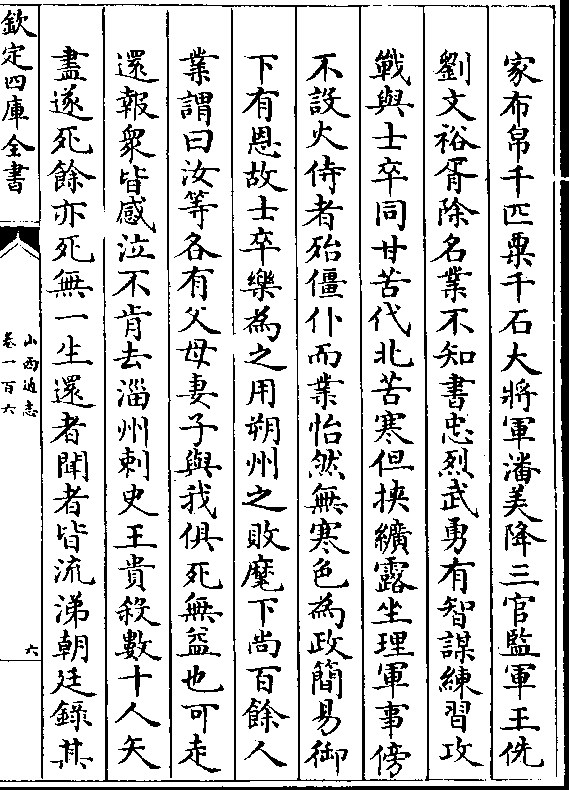 家布帛千匹粟千石大將軍潘美降三官監軍王侁
劉文裕胥除名業不知書忠烈武勇有智謀練習攻
戰與士卒同甘苦代北苦寒但挾纊露坐理軍事傍
不設火侍者殆僵仆而業怡然無寒色為政簡易御
下有恩故士卒樂為之用朔州之敗麾下尚百餘人
業謂曰汝等各有父母妻子與我俱死無益也可走
還報衆皆感泣不肯去淄州刺史王貴殺數十人矢
盡遂死餘亦死無一生還者聞者皆流涕朝廷錄其
欽定四庫全書
山西通志
卷一百六
六